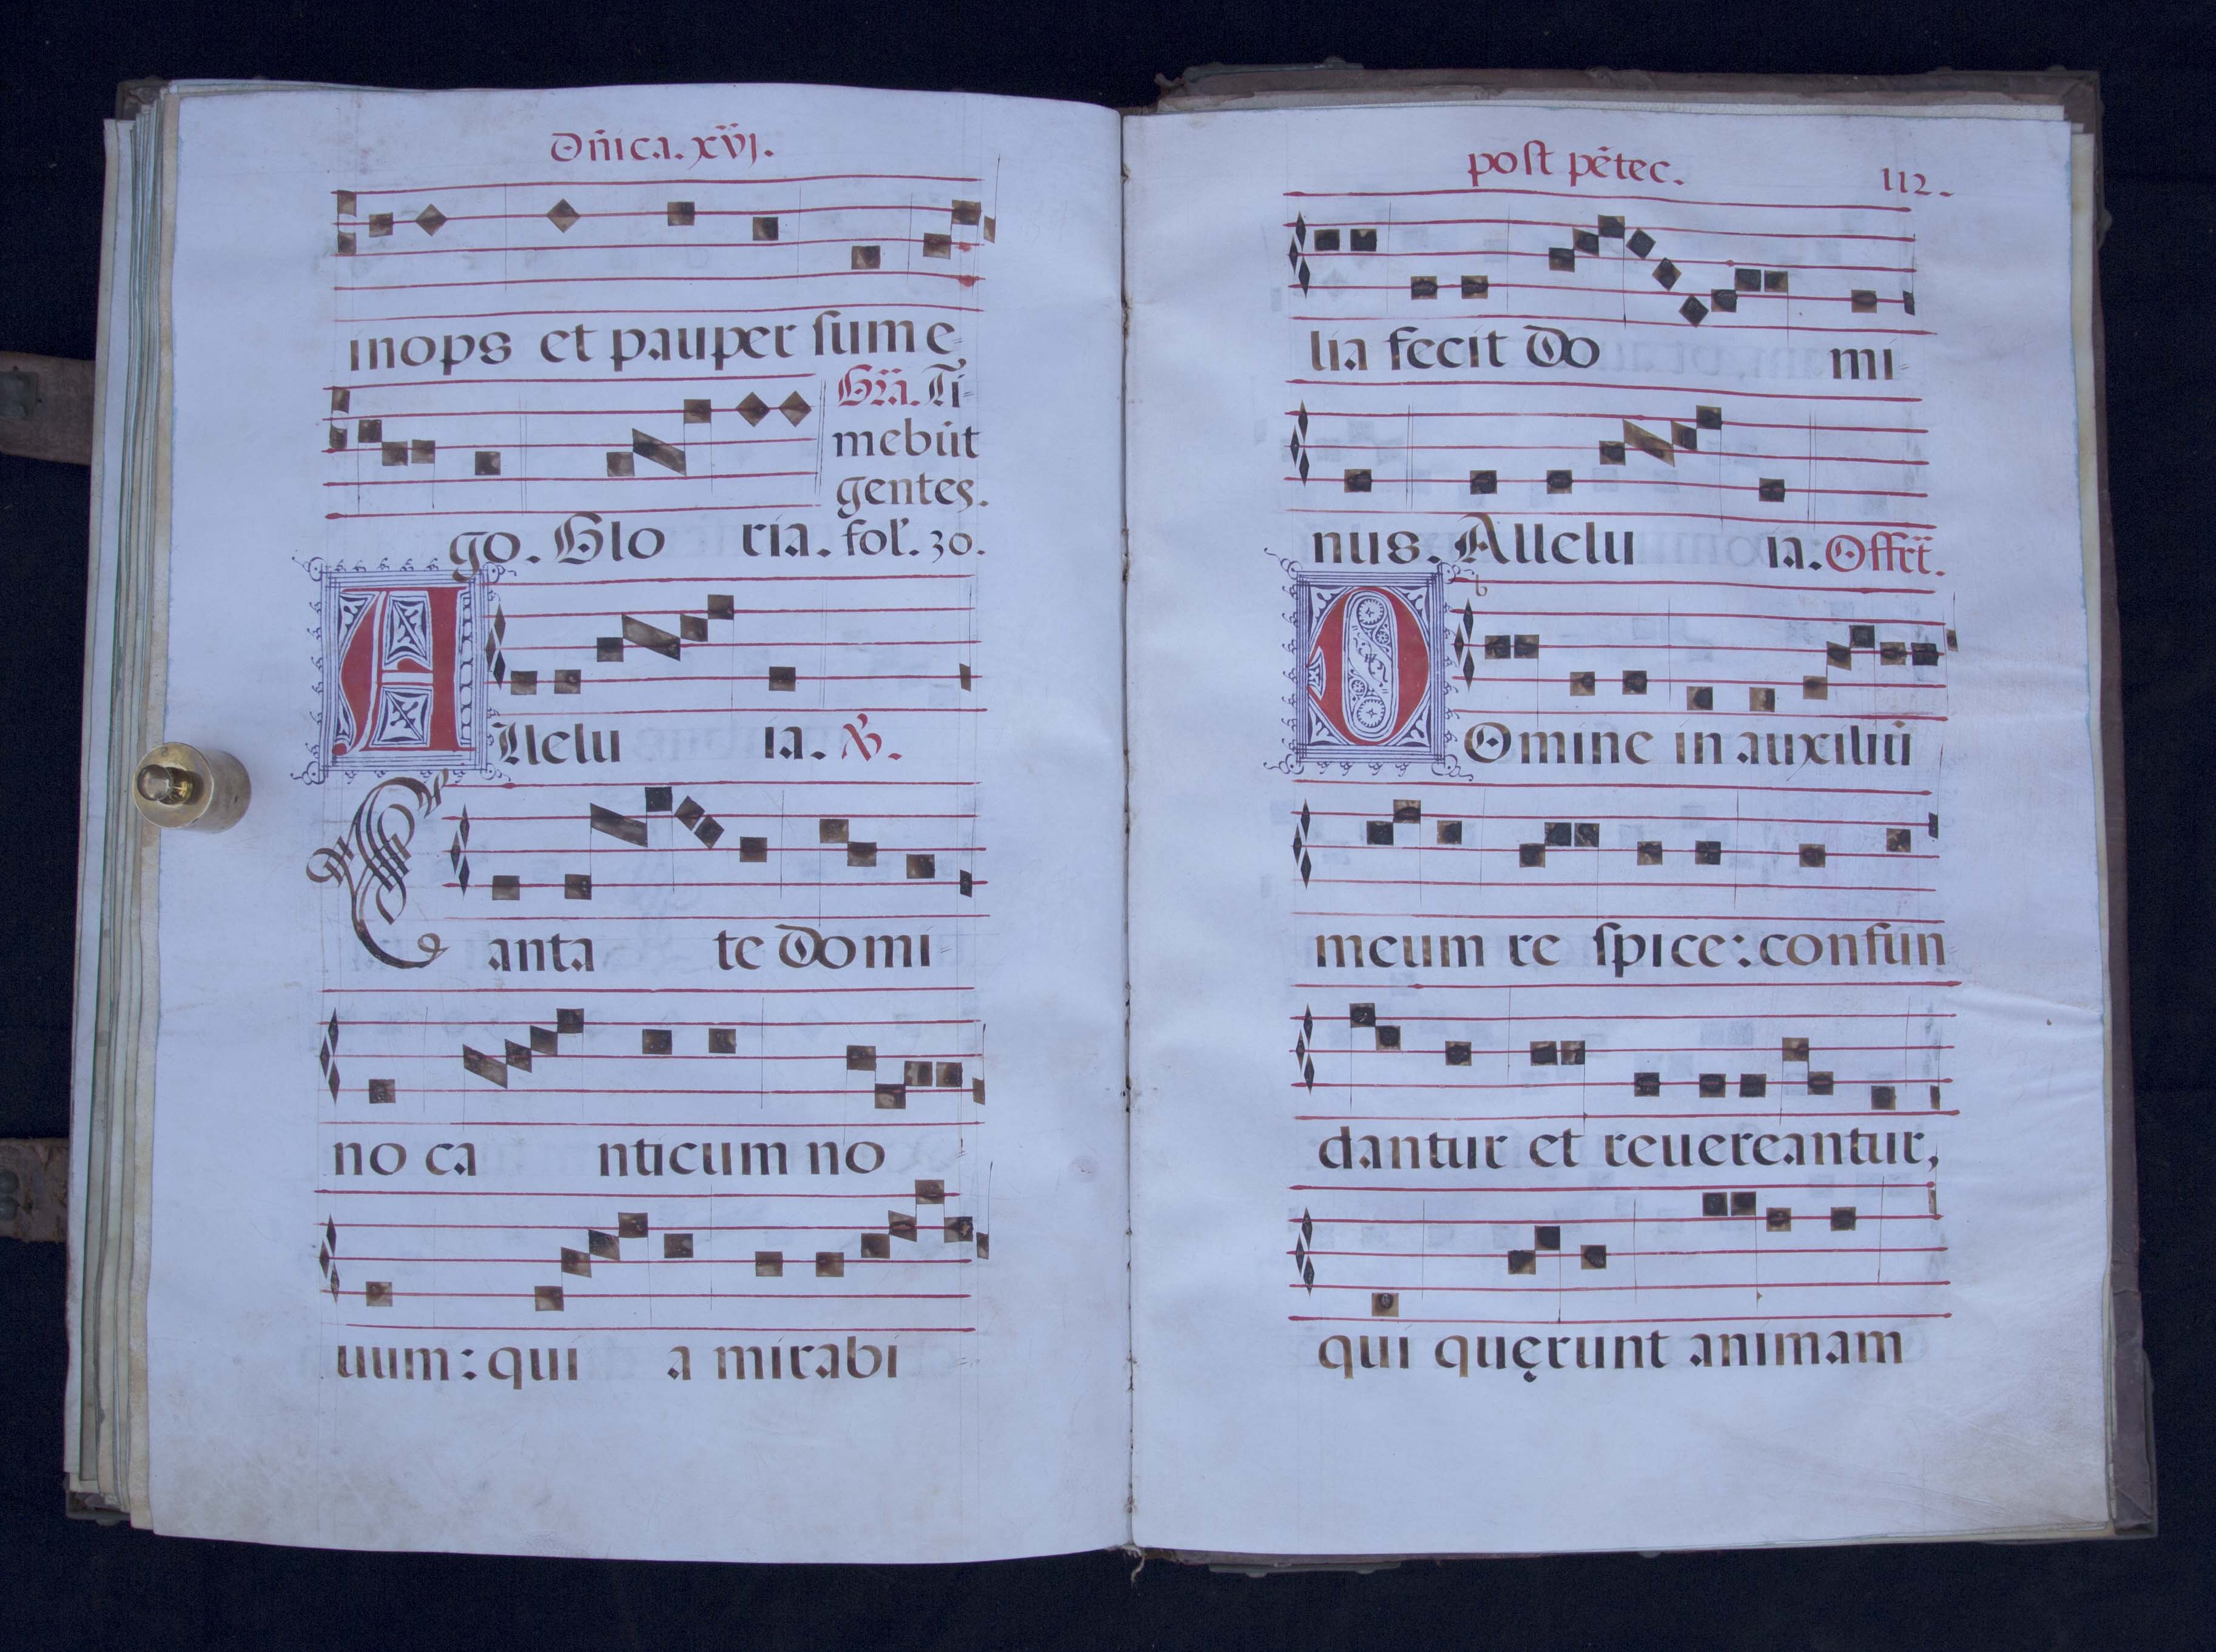 Dñica. xvj.
inops et pauper sum e
Gra. Ti
mebūt
gentes.
go. Glo ria. fol. 30.
Allelu ia. ℣.
Canta te Domi
no ca nticum no
uum: qui a mirabi
post pētec. 112.
lia fecit Do mi
nus. Allelu ia. Offrt.
DOmine in auxiliū
meum re spice: confun
dantur et reuereantur,
qui quęrunt animam